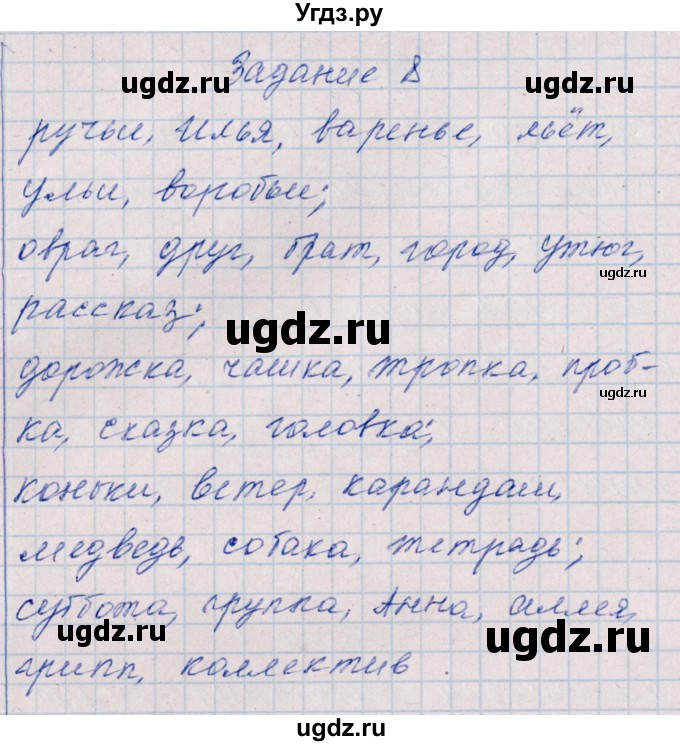 Угдз.ру
Задание 8
ugdz.ru ugdz.ru
ручьи, Илья, варенье, льёт,
ульи, воробьи;
овраг, друг, брат, город, утюг,
ugdz.ru
рассказ;
ugdz.ru
дорожка, чашка, тропка, проб-
ugdz.ru
ка, сказка, головка;
коньки, ветер, карандаш,
медведь, собака, тетрадь;
суббота, группа, Анна, аллея,
ugdz.ru ugdz.ru
грипп, коллектив
ugdz.ru